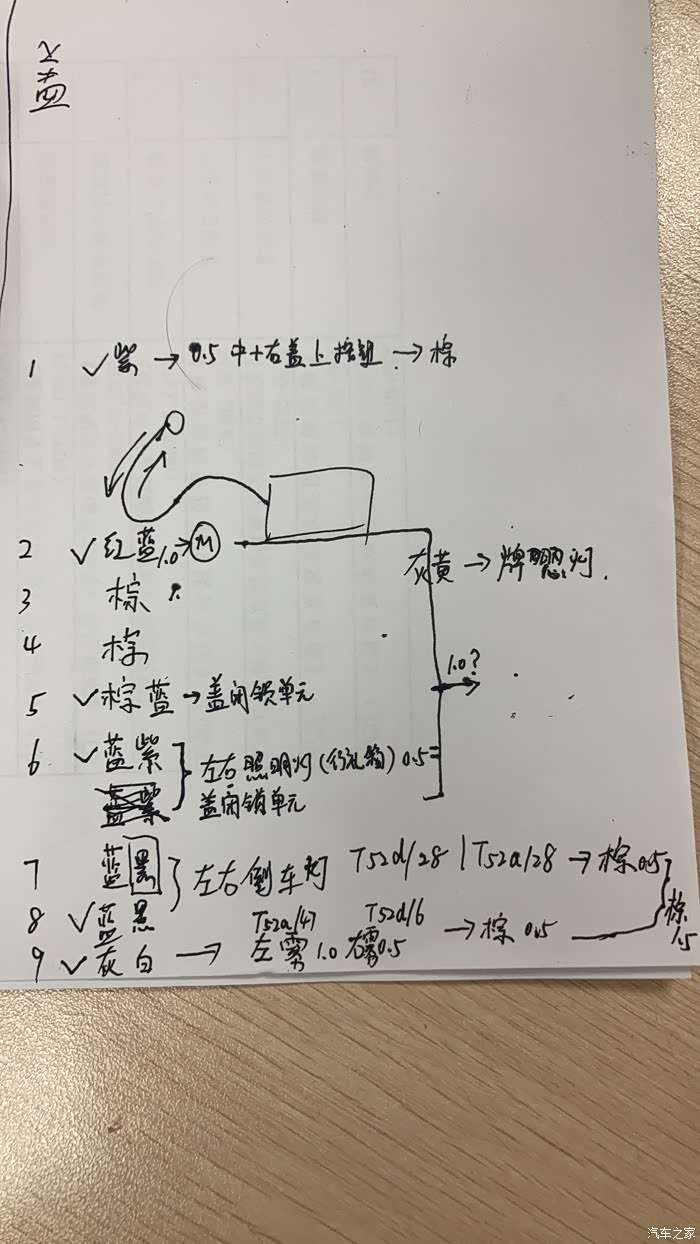 盖
1 ✓紫 → 0.5 中+右盖上按钮 → 棕
2 ✓红蓝 1.0→ M
灰黄 → 牌照灯.
3 棕
4 棕
1.0?
5 ✓棕蓝 → 盖闭锁单元
6 ✓蓝紫 } 左右照明灯(行礼箱) 0.5
盖紫 盖闭锁单元
7 蓝黑 } 左右倒车灯 T52d/28 | T52a/28 → 棕0.5
8 ✓蓝黑 T52a/47 T52d/6
棕 1.5
9 ✓灰白 → 左雾 1.0 右雾0.5 → 棕 0.5
汽车之家